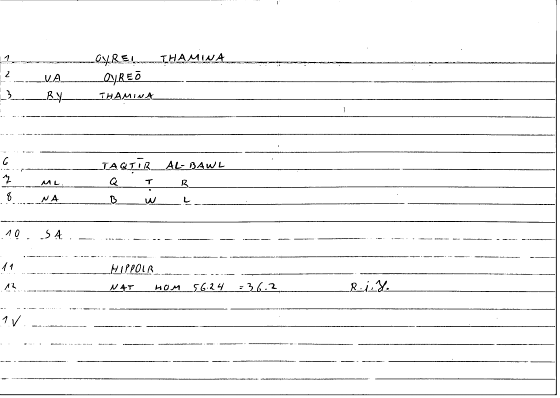 1 OYREI THAMINA
2 VA OYREŌ
3 RY THAMINA
6 TAQṬĪR AL-BAWL
7 ML Q Ṭ R
8 NA B W L
10 SA
11 HIPPOLR
12 NAT HOM 56.24 = 36.2 R.i.γ.
1V